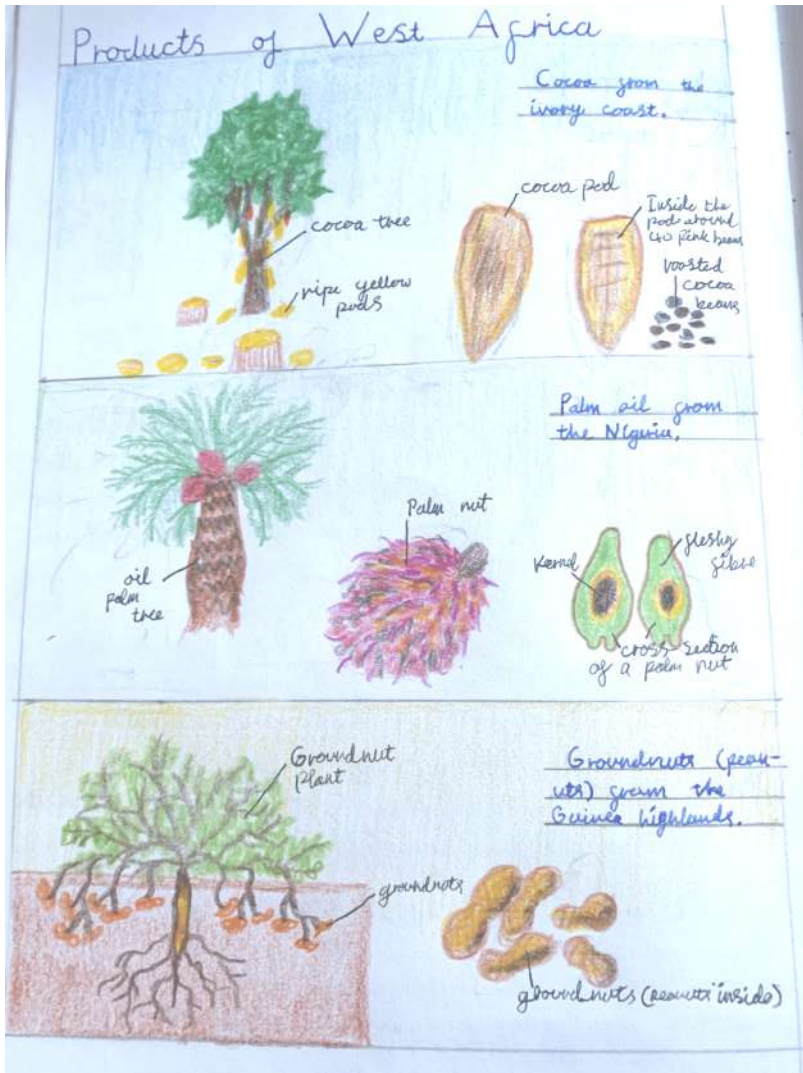 Products of West Africa
Cocoa from the
ivory coast.
cocoa tree
ripe yellow
pods
cocoa pod
Inside the
pods around
40 pink beans
roasted
cocoa
beans
Palm oil from
the Nigeria.
oil
palm
tree
Palm nut
Kernel
fleshy
fibre
cross-section
of a palm nut
Groundnut
plant
Groundnuts (pean-
uts) from the
Guinea highlands.
groundnuts
groundnuts (peanuts inside)